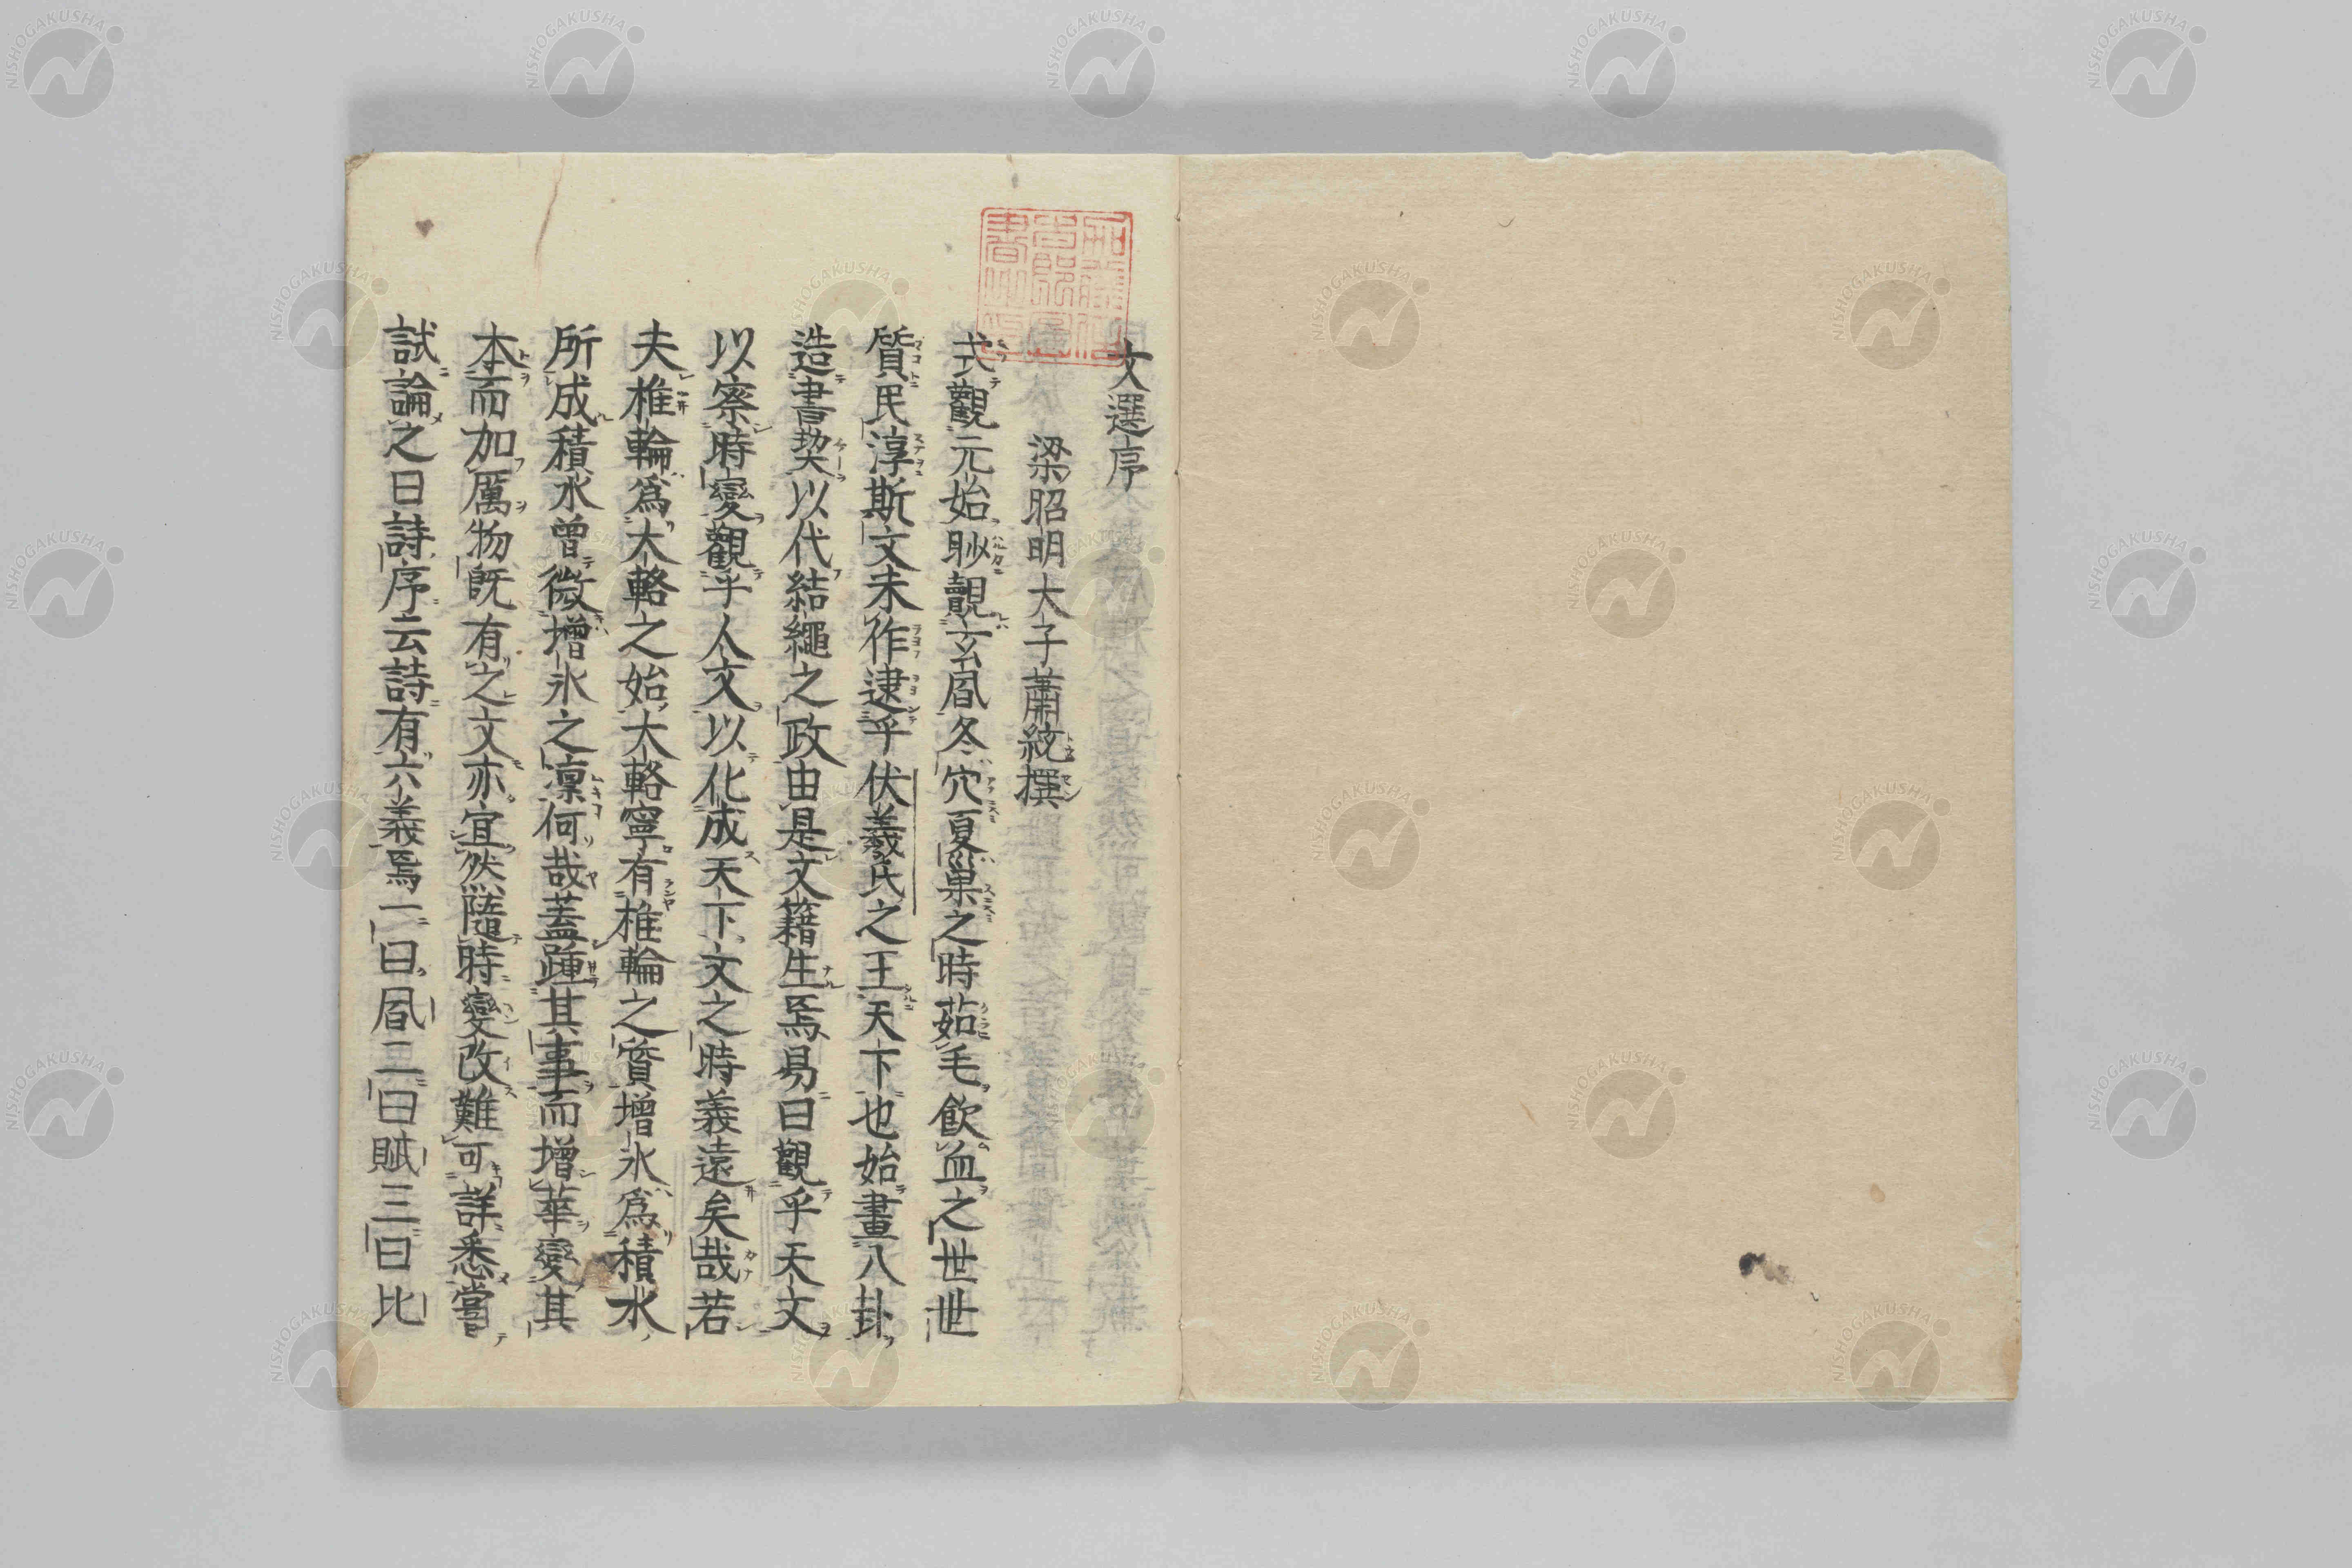 文選序
梁昭明太子蕭統撰
式觀元始眇覿玄風冬穴夏巢之時茹毛飲血之世世
質民淳斯文未作逮乎伏羲氏之王天下也始畫八卦
造書契以代結繩之政由是文籍生焉易曰觀乎天文
以察時變觀乎人文以化成天下文之時義遠矣哉若
夫椎輪爲大輅之始大輅寧有椎輪之質增氷爲積水
所成積水曾微增氷之凜何哉蓋踵其事而增華變其
本而加厲物既有之文亦宜然隨時變改難可詳悉嘗
試論之曰詩序云詩有六義焉一曰風二曰賦三曰比
NISHOGAKUSHA